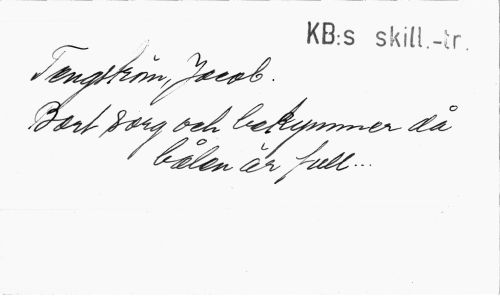 KB:s skill.-tr.
Tengström, Jacob.
Bort sorg och bekymmer då
bålen är full...